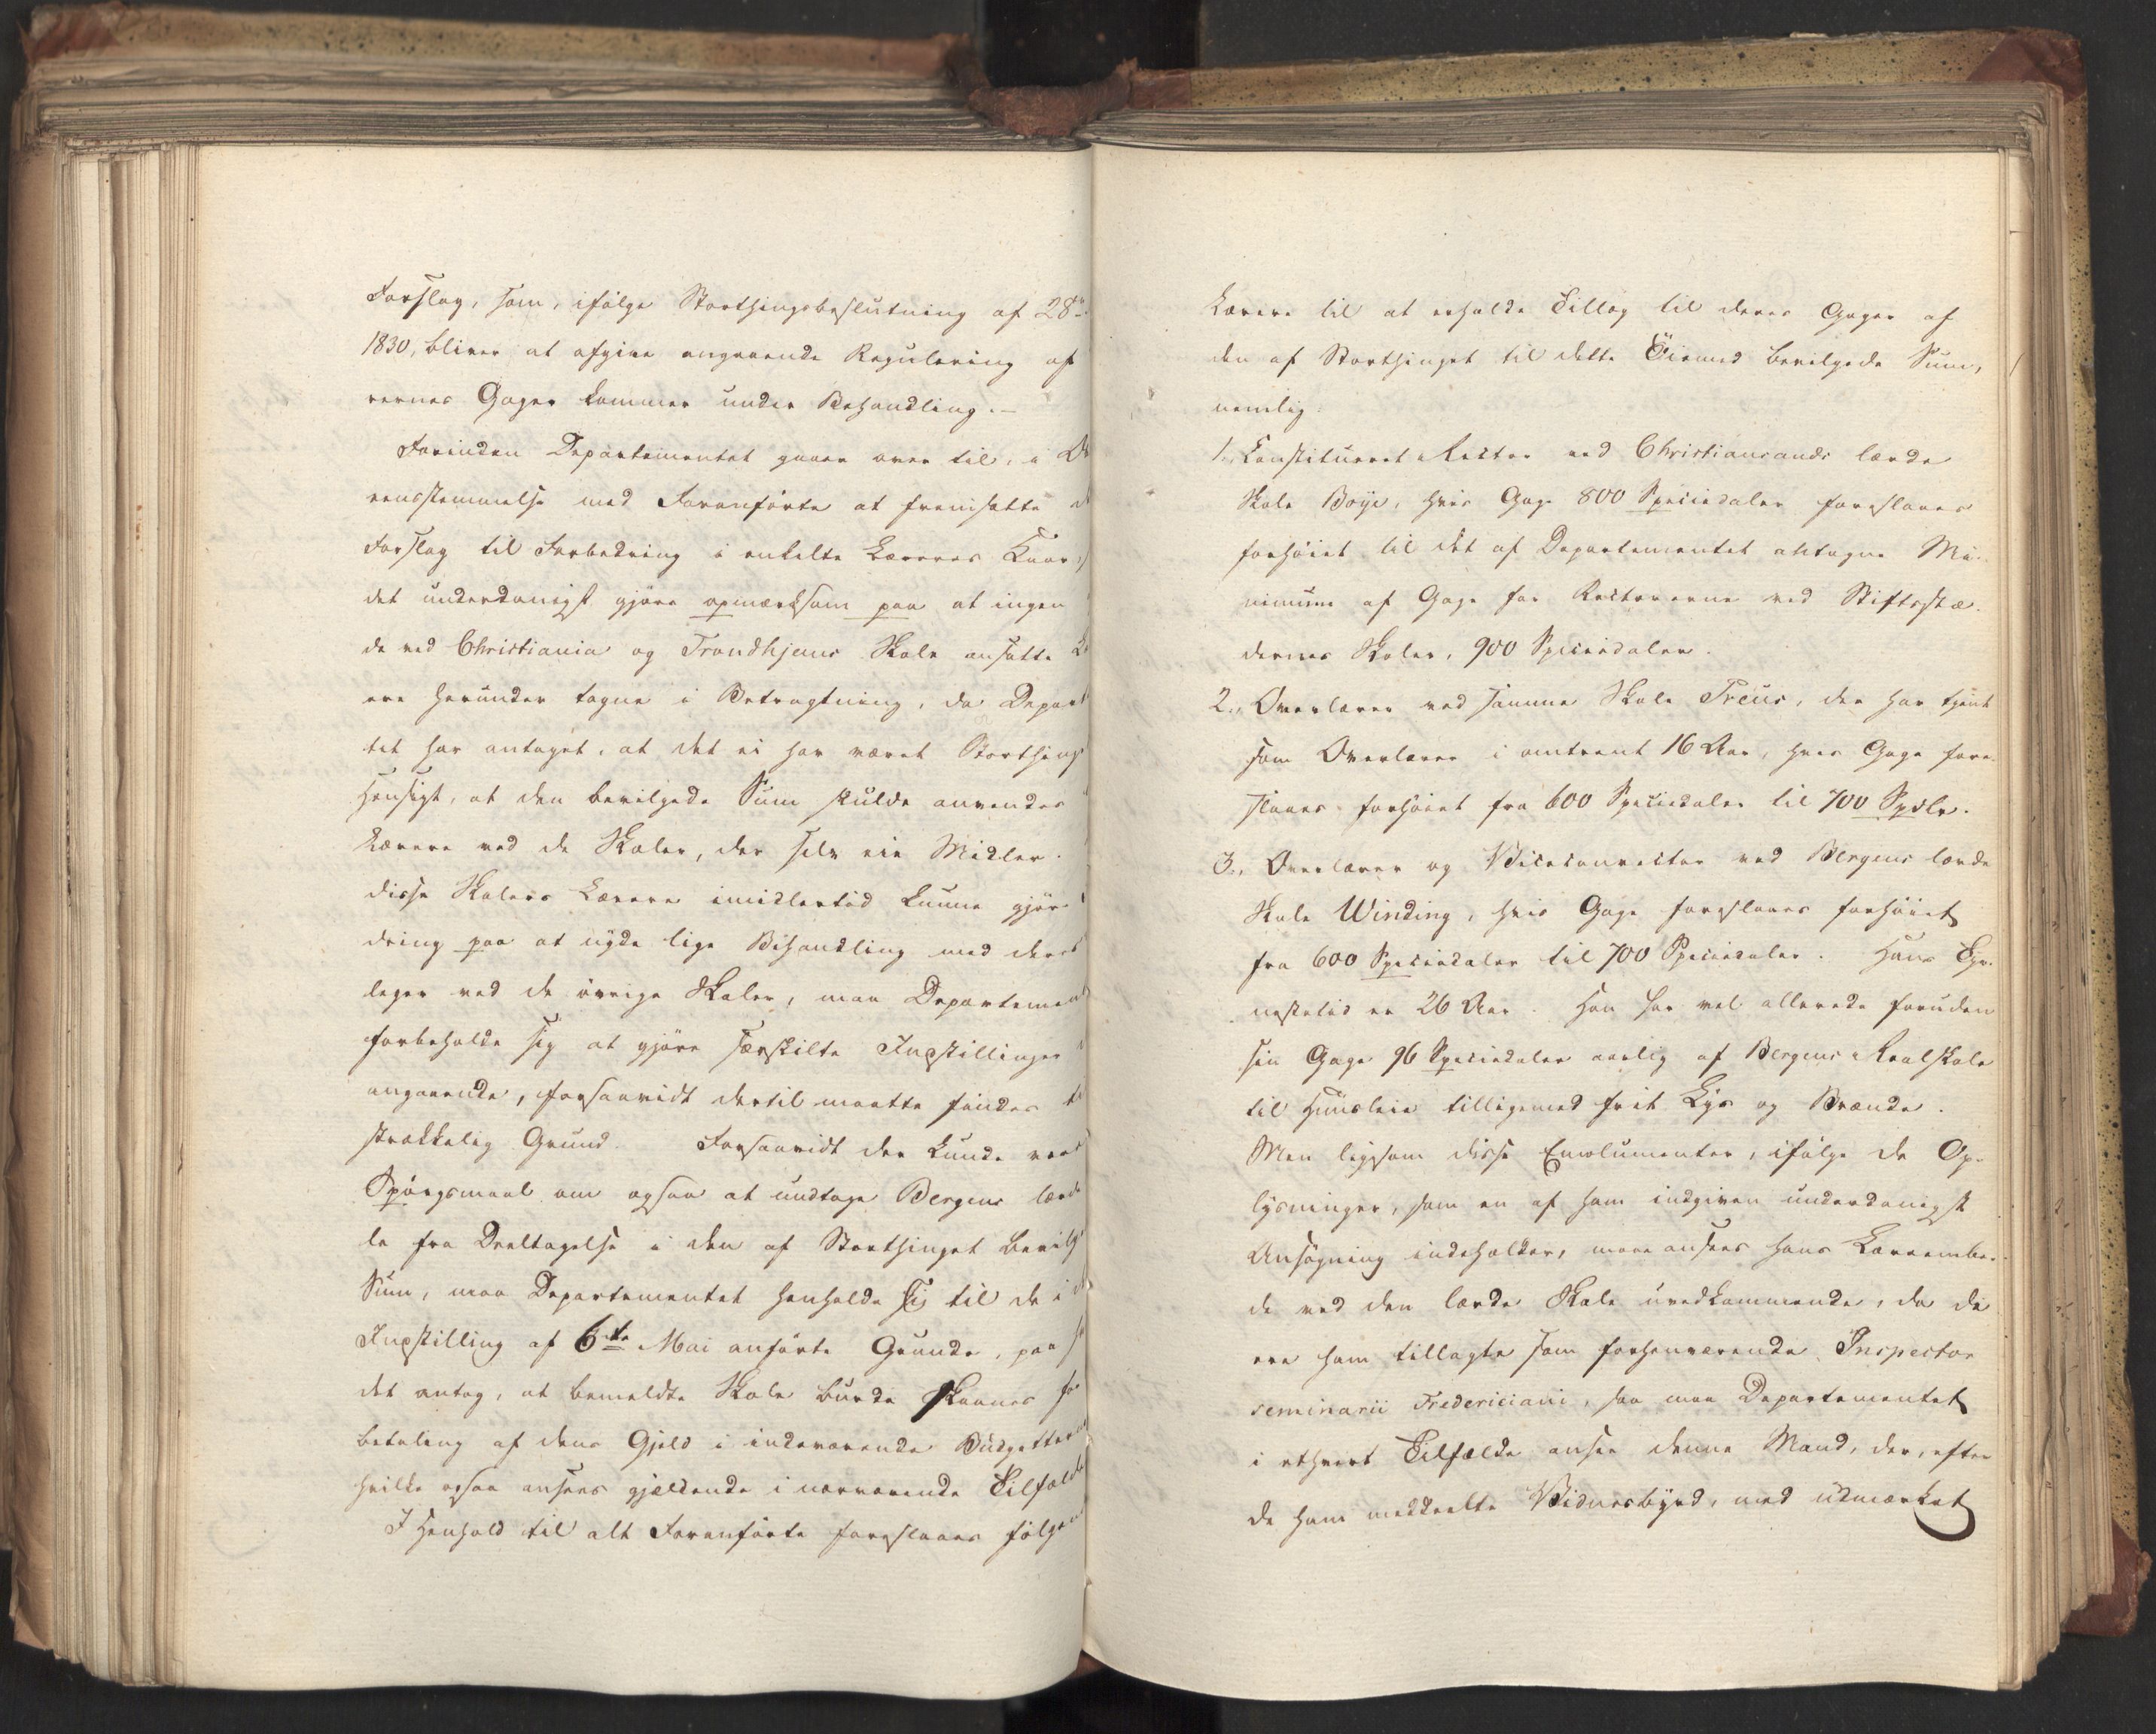 Forslag, som, ifølge Storthingsbeslutning af 28de
1830, bliver at afgive angaaende Regulering af
rernes Gager kommer under Behandling.-
Forinden Departementet gaaer over til, i Ov
rensstemmelse med Foranførte at fremsætte
Forslag til Forbedring i enkelte Læreres Kaar,
det underdanigst gjøre opmærksom paa at ingen
de ved Christiania og Trondhjems Skole ansatte Læ
ere herunder tagne i Betragtning, da Depart
tet har antaget, at det ei har været Storthings
Hensigt, at den bevilgede Sum skulde anvendes
Lærere ved de Skoler, der selv eie Midler.
disse Skolers Lærere imidlertid kunne gjøre
dring paa at nyde lige Behandling med deres
leger ved de øvrige Skoler, maa Departement
forbeholde sig at gjøre særskilte Indstillinger
angaaende, forsaavidt dertil maatte findes til
strækkelig Grund. Forsaavidt der kunde være
Spørgsmaal om ogsaa at undtage Bergens lærde
le fra Deeltagelse i den af Storthinget bevilg
Sum, maa Departementet henholde sig til de i
Indstilling af 6te Mai anførte Grunde, paa
det antog, at bemeldte Skole burde skaanes for
betaling af dens Gjeld i indeværende Budgettermin
hvilke ogsaa ansees gjældende i nærværende Tilfælde
I Henhold til alt Foranførte foreslaaes følgen
Lærere til at erholde Tillæg til deres Gager af
den af Storthinget til dette Øiemed bevilgede Sum,
nemlig:
1., Constitueret Rector ved Christiansands lærde
Skole Boye, hvis Gage 800 Speciedaler foreslaaes
forhøiet til det af Departementet antagne Mi-
nimum af Gage for Rectorerne ved Stiftsstæ-
dernes Skoler, 900 Speciedaler.
2., Overlærer ved samme Skole Preus, der har tjent
som Overlærer i omtrent 16 Aar, hvis Gage fore-
slaaes forhøiet fra 600 Speciedaler til 700 Spdlr.
3., Overlærer og Viceconrector ved Bergens lærde
Skole Winding, hvis Gage foreslaaes forhøiet
fra 600 Speciedaler til 700 Speciedaler. Hans Tje-
nestetid er 26 Aar. Han har vel allerede foruden
sin Gage 96 Speciedaler aarlig af Bergens Realskole
til Huusleie tilligemed frit Lys og Brænde.
Men ligesom disse Emolumenter, ifølge de Op-
lysninger, som en af ham indgiven underdanigst
Ansøgning indeholder, maae ansees hans Læreembe-
de ved den lærde Skole uvedkommende, da de
ere ham tillagte som forhenværende Inspector
seminarii Fredericiani, saa maa Departementet
i ethvert Tilfælde ansee denne Mand, der, efter
de ham meddeelte Vidnesbyrd, med udmærket